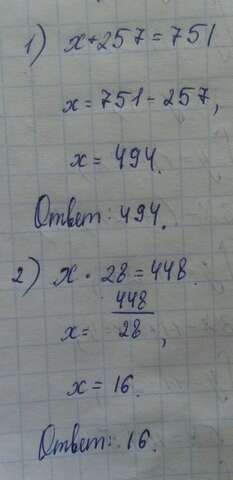 1) x+257=751
x=751-257,
x=494.
Ответ: 494.
2) x · 28=448.
x= 448/28,
x=16.
Ответ: 16.